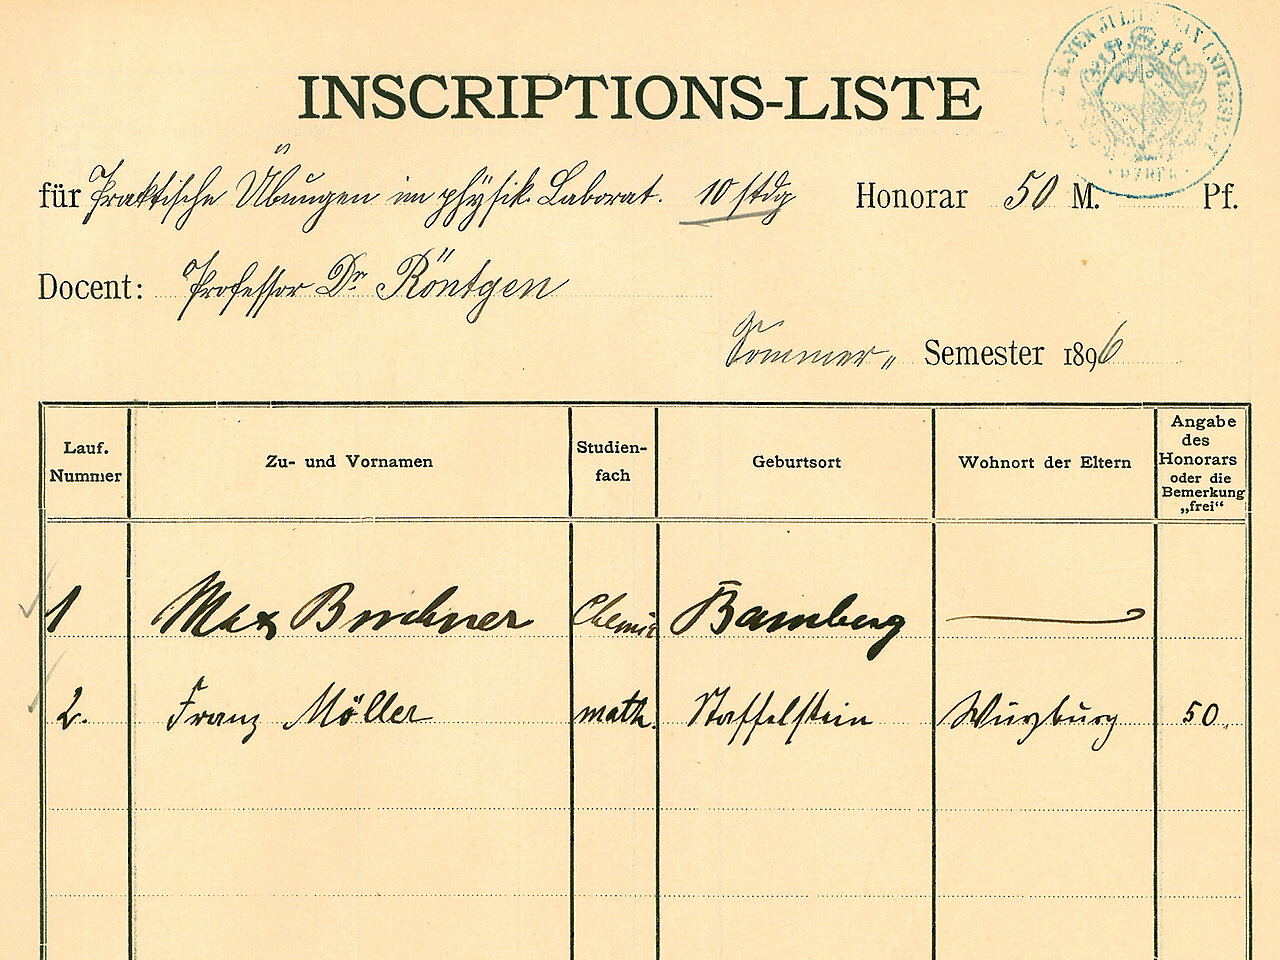 INSCRIPTIONS-LISTE
für Praktische Übungen im physik. Laborat. 10 stdg Honorar 50 M. Pf.
Docent: Professor Dr. Röntgen
Sommer„ Semester 1896
Lauf. Nummer
Zu- und Vornamen
Studien-
fach
Geburtsort
Wohnort der Eltern
Angabe
des
Honorars
oder die
Bemerkung
„frei“
1 Max Buchner Chemie Bamberg
2. Franz Möller math. Staffelstein Würzburg 50